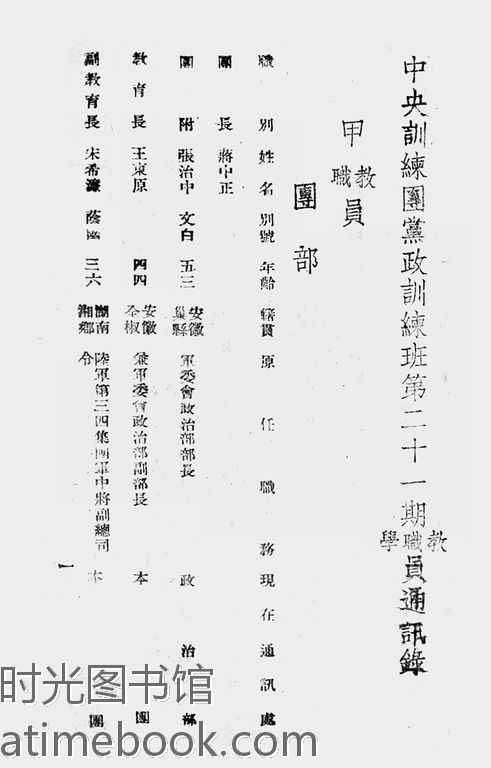 中央訓練團黨政訓練班第二十一期教職學員通訊錄
甲 教職員
團部
職別 姓名 別號 年齡 籍貫 原任職務 現在通訊處
團長 蔣中正
團附 張治中 文白 五三 安徽巢縣 軍委會政治部部長 政治部
教育長 王東原 四四 安徽全椒 兼軍委會政治部副部長 本團
副教育長 宋希濂 蔭國 三六 湖南湘鄉 陸軍第三四集團軍中將副總司令 本團
一
时光图书馆
atimebook.com